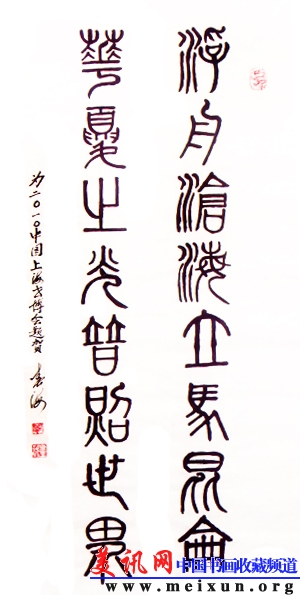 浮舟滄海立馬昆侖
華夏之光普照世界
为二〇一〇中国上海世博会题贺
美讯网 中国书画收藏频道
www.meixun.org